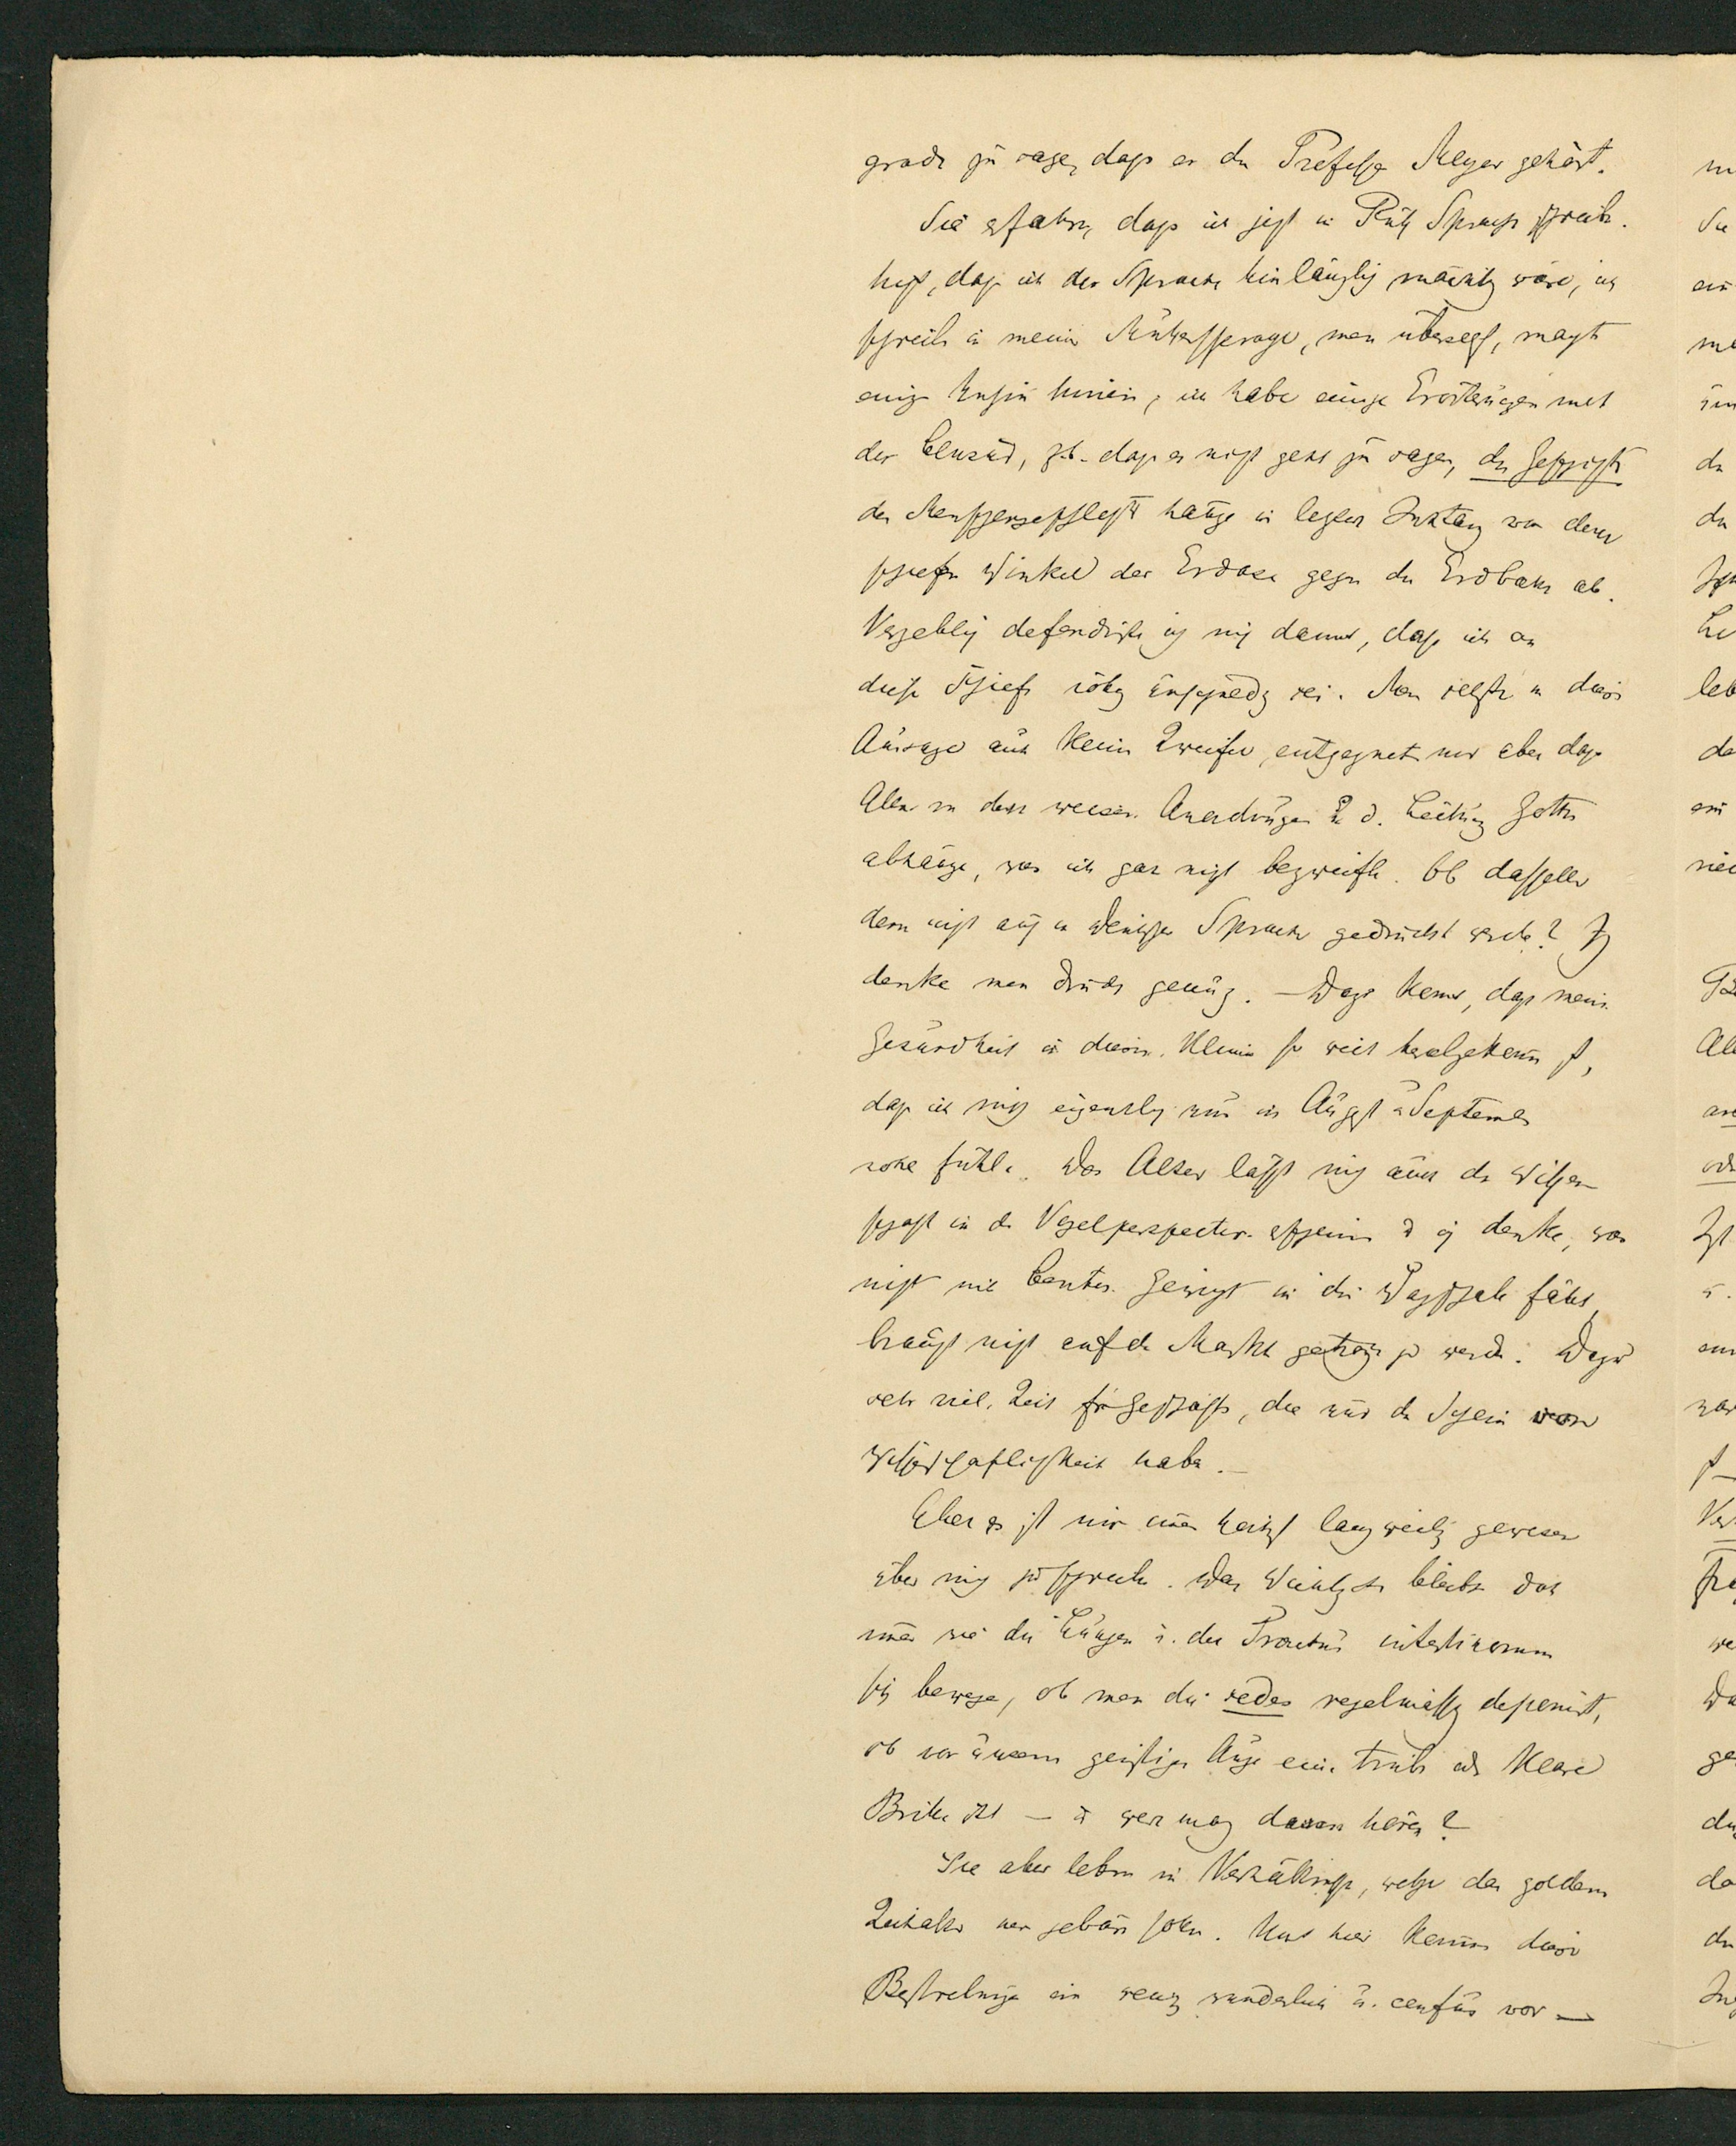 grade zu sagen, dass er den Professor Meyer gehört.
Sie erfahren, dass ich jetzt in Russ. Sprache schreibe.
nicht, dass ich der Sprache hinlänglich mächtig wäre, ich
schreibe in meiner Muttersprache, man übersetzt, macht
einige hinein, ich habe einige Erörterungen mit
der Censur, z.b. dass es nicht geht zu sagen, die Geschichte
der Menschengeschlecht hänge in letzter Instanz von dem
schiefen Winkel der Erdaxe gegen die Erdbahn ab.
Vergeblich defendirte ich mich damit, dass ich an
dieser Schiefe völlig unschuldig sei. Man setzte in diese
Aussage auch keinen Zweifel, entgegnete mir aber dass
Alles von den weisen Anordnungen u d. Leitung Gottes
abhänge, was ich gar nicht bezweifle. Ob dasselbe
denn nicht auch in Deutscher Sprache gedruckt werde? Ich
denke man druckt genug. — Dazu kommt, dass meine
Gesundheit in diesem Klima so weit herabgekommen ist,
dass ich mich eigentlich nur im August u September
wohl fühle. Das Alter lässt mich auch die Wissen-
schaft in der Vogelperspective erscheinen u ich denke, was
nicht mit Centner Gewicht in die Wagschale fällt,
braucht nicht auf den Markt getragen zu werden. Dazu
sehr viel Zeit für Geschäfte, die nur den Schein von
Wissenschaftlichkeit haben. —
Aber es ist mir immer herzlich langweilig gewesen
über mich zu sprechen. Das Wichtigste bleibt doch
immer wie die Lungen u. der Tractus intestinorum
sich bewege, ob man die sedes regelmässig deponirt,
ob vor unserm geistigen Auge eine trübe oder klare
Brille sitzt — u wer mag davon hören?
Sie aber leben in Verhältnissen, welche das goldene
Zeitalter neu gebären sollen. Uns hier kommen diese
Bestrebungen ein wenig wunderlich u. confus vor —